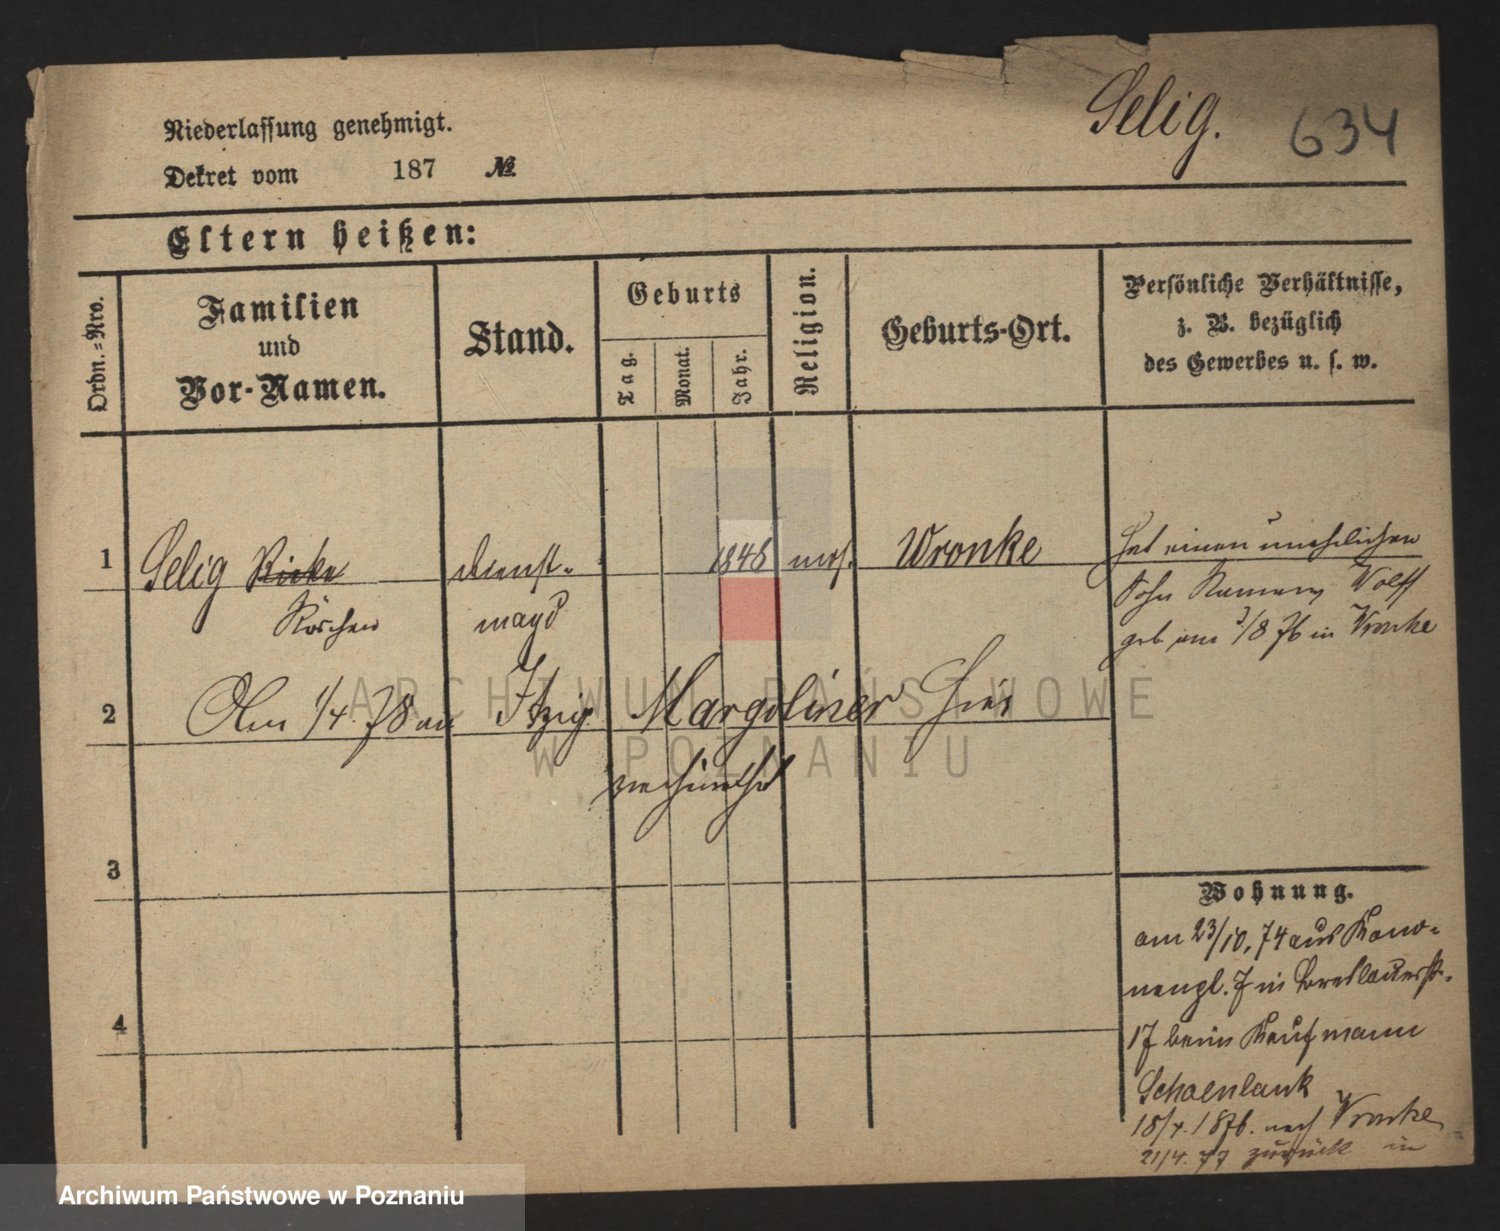 Selig. 634
Niederlassung genehmigt.
Dekret vom 187 №
Eltern heißen:
Ordn.-Nro.
Familien
und
Vor-Namen.
Stand.
Geburts
Tag.
Monat.
Jahr.
Religion.
Geburts-Ort.
Persönliche Verhältnisse,
z. B. bezüglich
des Gewerbes u. s. w.
1 Selig Rieke dienst- 1848 mos. Wronke
Röschen magd
hat einen unehelichen
Sohn Namens Wolff
geb am 3/8 76 in Wronke
2 Am 1/4 78 an Itzig Margoliner hier
verheirathet
3
4
Wohnung.
am 23/10. 74 aus Kano-
nenpl. 7 in Breslauerstr.
17 beim Kaufmann
Schoenlank
18/4. 1876. nach Wronke
21/4. 77 zurück in
ARCHIWUM PAŃSTWOWE
W POZNANIU
Archiwum Państwowe w Poznaniu